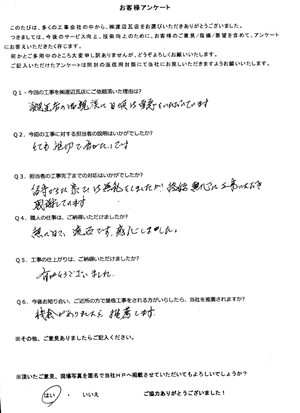 お客様アンケート
このたびは、多くの工事会社の中から、㈱渡辺瓦店をお選びいただきありがとうございました。
つきましては、今後のサービス向上と、技術向上のために、お客様のご意見/指摘/要望を含めて、アンケート
にお答えいただきたく存じます。
何かとご多用中のところ大変申し訳ありませんが、どうぞよろしくお願いいたします。
ご記入いただけたアンケートは同封の返信用封筒にて当社にお戻しいただきますようお願いいたします。
Q1・今回の工事を㈱渡辺瓦店にご依頼頂いた理由は?
Q2・今回の工事に対する担当者の説明はいかがでしたか?
とても 親切で
Q3．担当者の工事完了までの対応はいかがでしたか?
感謝しています
Q4．職人の仕事は、ご納得いただけましたか?
流石です、感心しました。
Q5．工事の仕上がりは、ご納得いただけましたか?
ありがとうございました
Q6．今後お知り合い、ご近所の方で屋根工事をされる方がいらしたら、当社を推薦されますか?
機会がありましたら 推薦します
※その他、ご意見ありましたらご記入ください。
※頂いたご意見、現場写真を匿名で当社HPへ掲載させていただいてもよろしいでしょうか?
はい ・ いいえ
ご協力ありがとうございました!